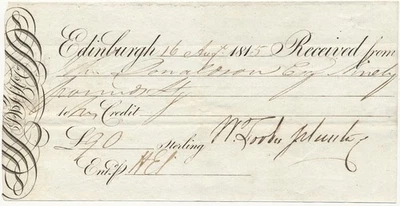 Edinburgh 16 Augt. 1815 Received from
Wm. Donaldson Esq Ninety
pounds Stg
to his Credit
£90 sterling Wm. Forbes
Entd. p HEI